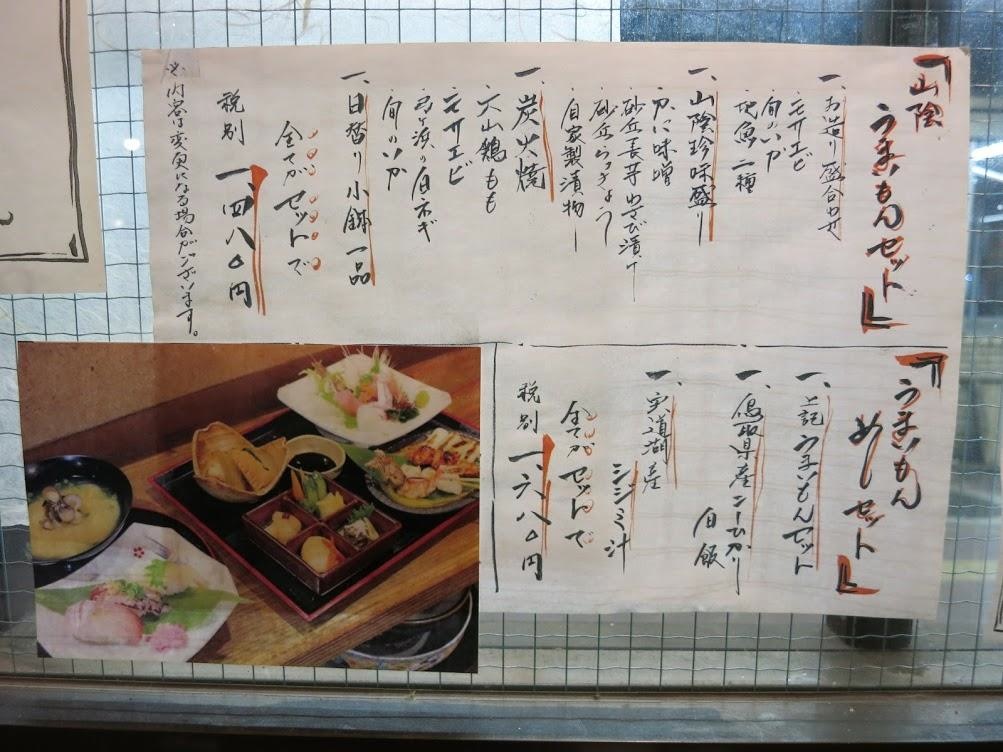 『山陰
うまいもんセット』
一、お造り盛合わせ
・モサエビ
・旬のいか
・地魚二種
一、山陰珍味盛り
・カニ味噌
・砂丘長芋わさび漬け
・砂丘らっきょう
・自家製漬物
一、炭火焼
・大山鶏もも
・モサエビ
・弓ヶ浜の白ネギ
・旬のいか
一、日替り小鉢一品
全てがセットで
税別 一、四八〇円
※内容は変更になる場合がございます。
『うまいもん
めしセット』
一、上記うまいもんセット
一、鳥取県産コシヒカリ
白飯
一、宍道湖産
シジミ汁
全てがセットで
税別 一、六八〇円